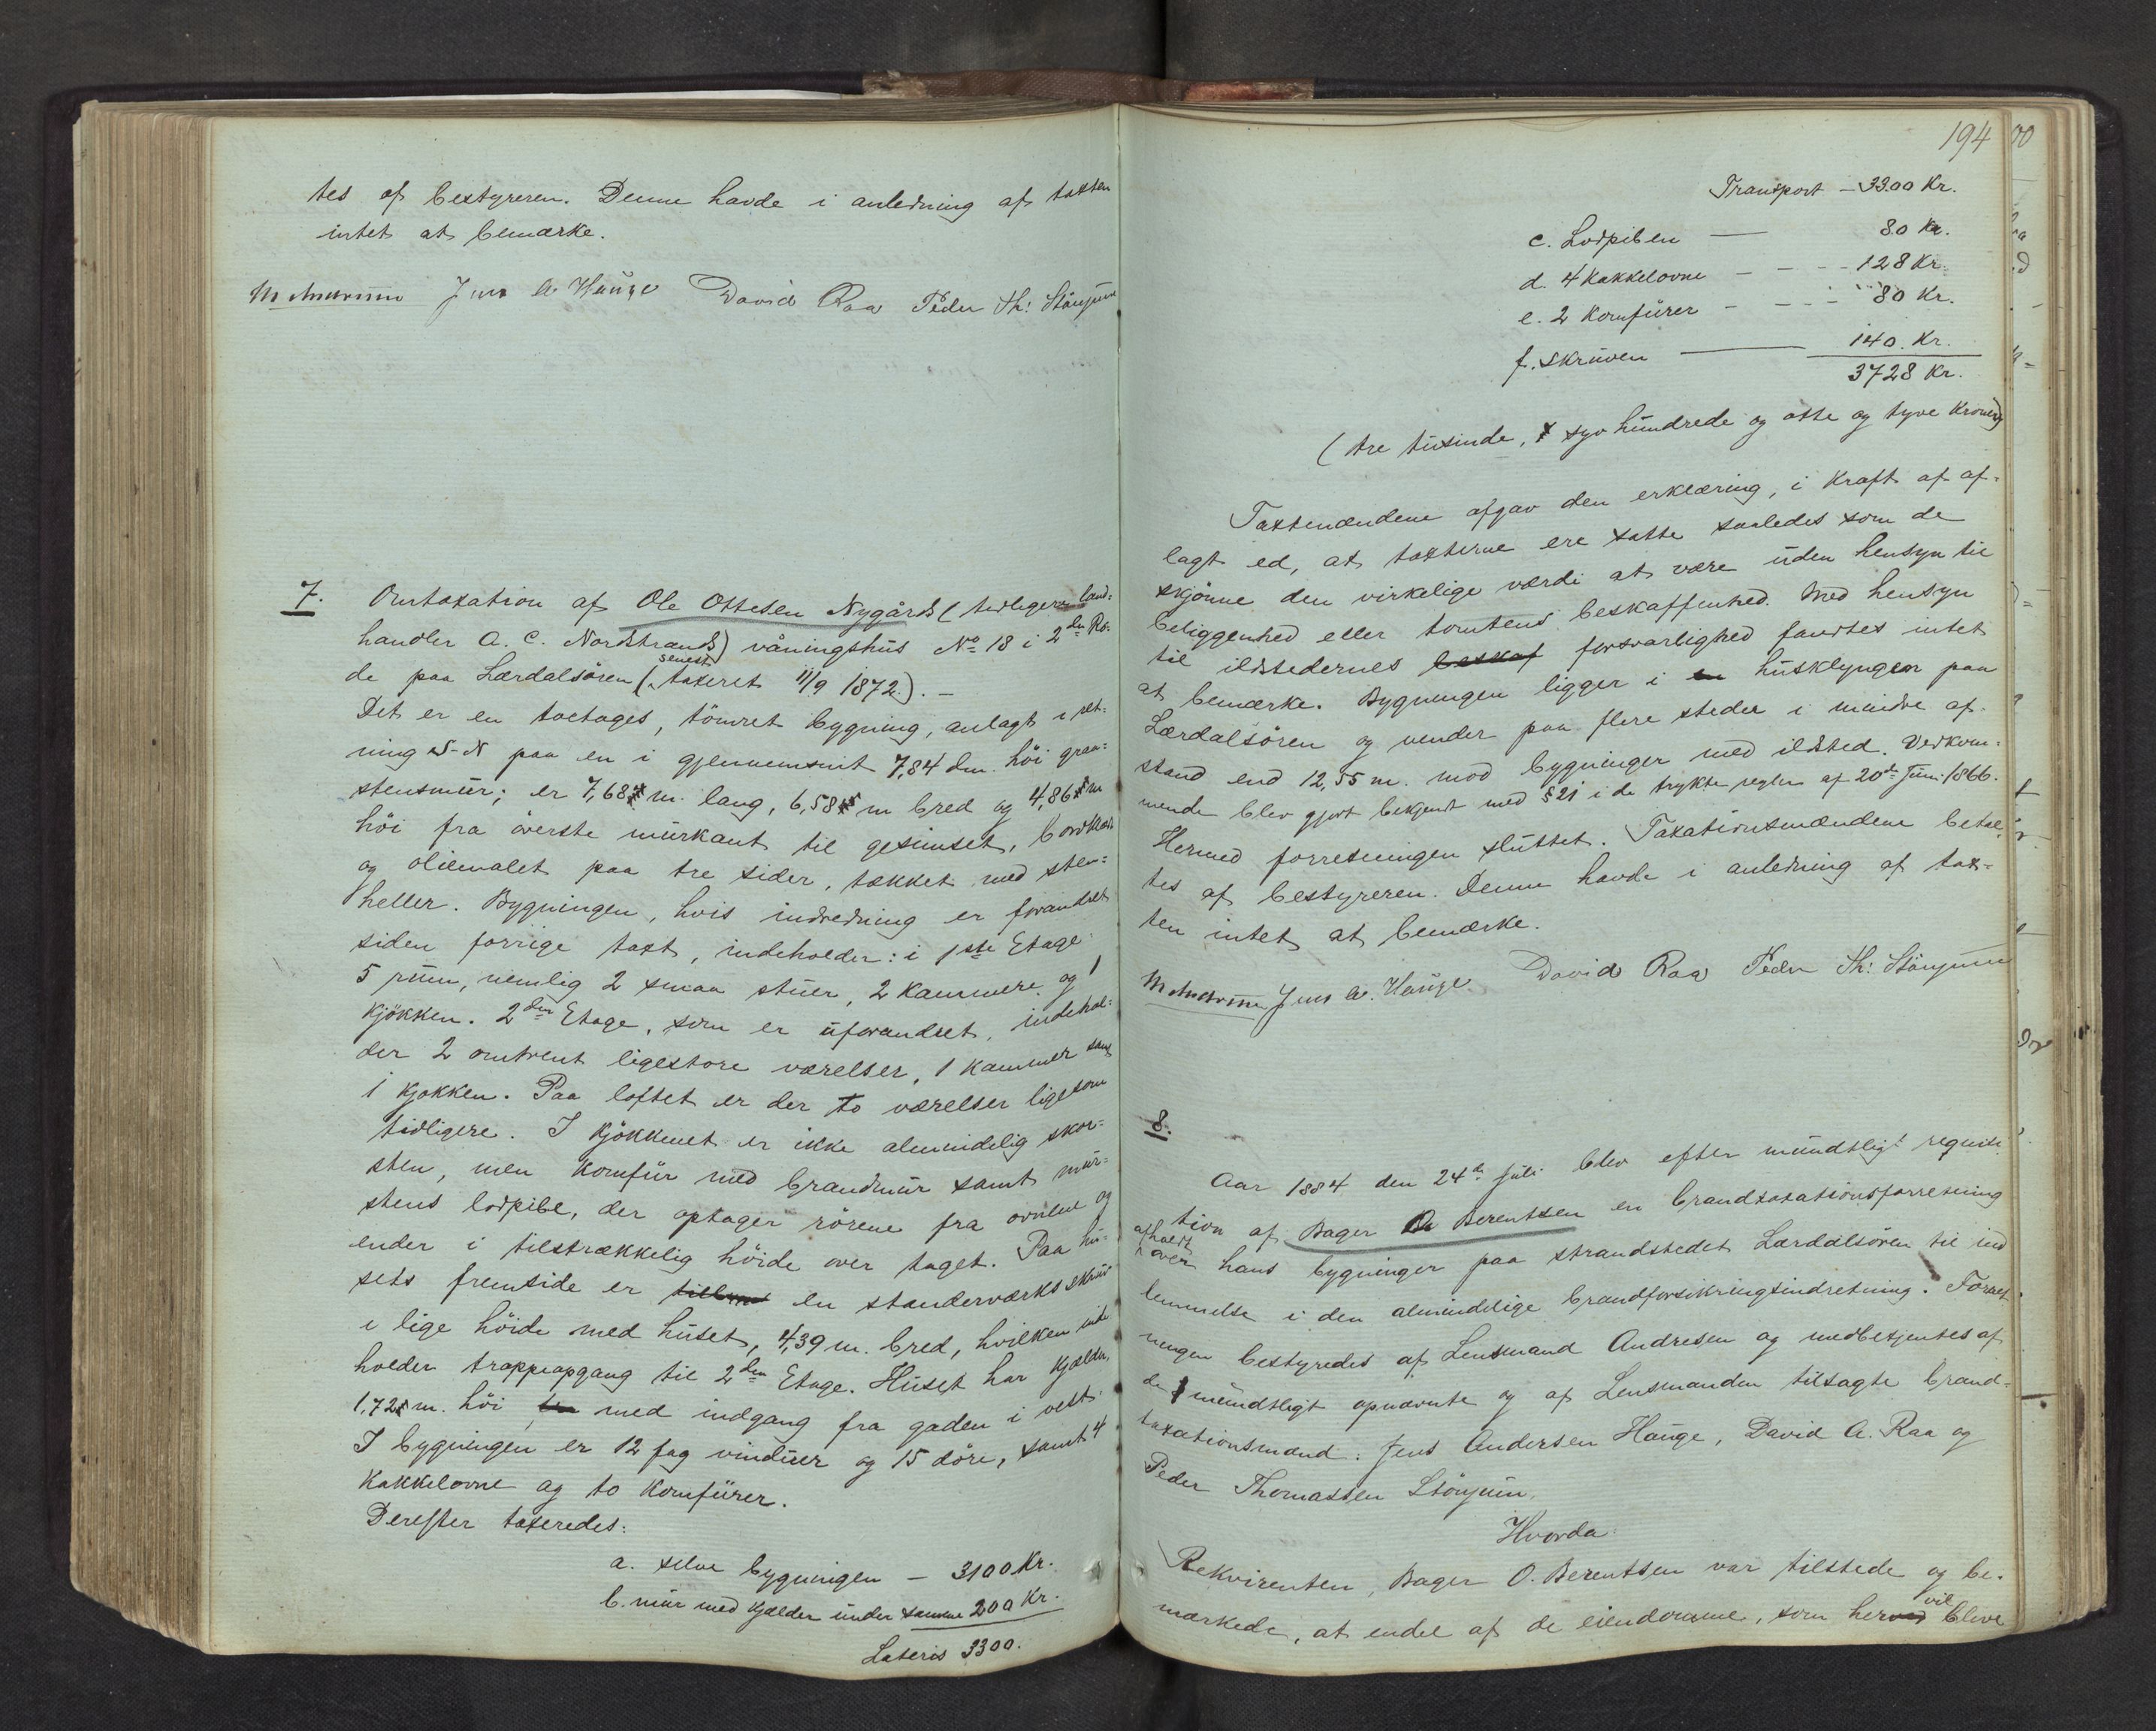 tes af bestyreren. Denne havde i anledning af taxten
intet at bemærke.
M Andresen Jens A Hauge David Raa Peder Th: Stönjum
7. Omtaxation af Ole Ottesen Nygårds (tidligere land=
handler A. C. Nordstrands) våningshus No 18 i 2den Ro-
de paa Lærdalsören (senest taxeret 11/9 1872.). —
Det er en toetages, tömret bygning, anlagt i ret=
ning S-N paa en i gjennemsnit 7,84 dm. höi graa=
stensmur; er 7,68 m. lang, 6,58 m bred og 4,86 m
höi fra överste murkant til gesimset, bordklædt
og oliemalet paa tre sider, tækket med sten=
heller. Bygningen, hvis indredning er forandret
siden forrige taxt, indeholder: i 1ste Etage:
5 rum, nemlig 2 smaa stuer, 2 kammere og 1
kjökken. 2den Etage, som er uforandret, indehol=
der 2 omtrent ligestore værelser, 1 kammer samt
1 kjökken. Paa loftet er der to værelser ligesom
tidligere. I kjökkenet er ikke almindelig skor=
sten, men komfur med brandmur samt mur=
stens lodpibe, der optager rörene fra ovnene og
ender i tilstrækkelig höide over taget. Paa hu=
sets fremside er en standerværks skruv
i lige höide med huset, 4,39 m. bred, hvilken inde
holder trappeopgang til 2den Etage. Huset har kjælder,
1,72 m. höi med indgang fra gaden i vest.
I bygningen er 12 fag vinduer og 15 döre, samt 4
kakkelovne og to komfurer.
Derefter taxeredes:
a. selve bygningen — 3100 Kr.
b. mur med kjælder under samme 200 Kr.
Lateris 3300.
194
Transport — 3300 Kr.
c. Lodpiben — 80 Kr.
d. 4 kakkelovne - - - 128 Kr.
e. 2 komfurer - - - 80 Kr.
f. skruven — 140. Kr.
3728 Kr.
(tre tusinde, syv hundrede og otte og tyve kroner)
Taxtmændene afgav den erklæring, i kraft af af-
lagt ed, at taxterne ere satte saaledes som de
skjönne den virkelige værdi at være uden hensyn til
beliggenhed eller tomtens beskaffenhed. Med hensyn
til ildstedernes beskaf forsvarlighed fandtes intet
at bemærke. Bygningen ligger i en husklyngen paa
Lærdalsören og vender paa flere steder i mindre af-
stand end 12,55 m. mod bygninger med ildsted. Vedkom=
mende blev gjort bekjendt med §21 i de trykte regler af 20de Juni 1866.
Hermed forretningen sluttet. Taxationsmændene betal
tes af bestyreren. Denne havde i anledning af tax-
ten intet at bemærke.
M Andresen Jens A. Hauge David Raa Peder Th: Stönjum
8.
Aar 1884 den 24de Juli blev efter mundtligt rekvisi
tion af Bager O Berentsen en brandtaxationsforretning
afholdt over hans bygninger paa strandstedet Lærdalsören til ind
lemmelse i den almindelige brandforsikringsindretning. Forret
ningen bestyredes af Lensmand Andresen og medbetjentes af
de mundtligt opnævnte og af Lensmanden tilsagte brand=
taxationsmænd: Jens Andersen Hauge, David A. Raa og
Peder Thomassen Stönjum.
Hvorda:
Rekvirenten, Bager O. Berentsen var tilstede og be-
mærkede, at endel af de eiendomme, som herved vil blive